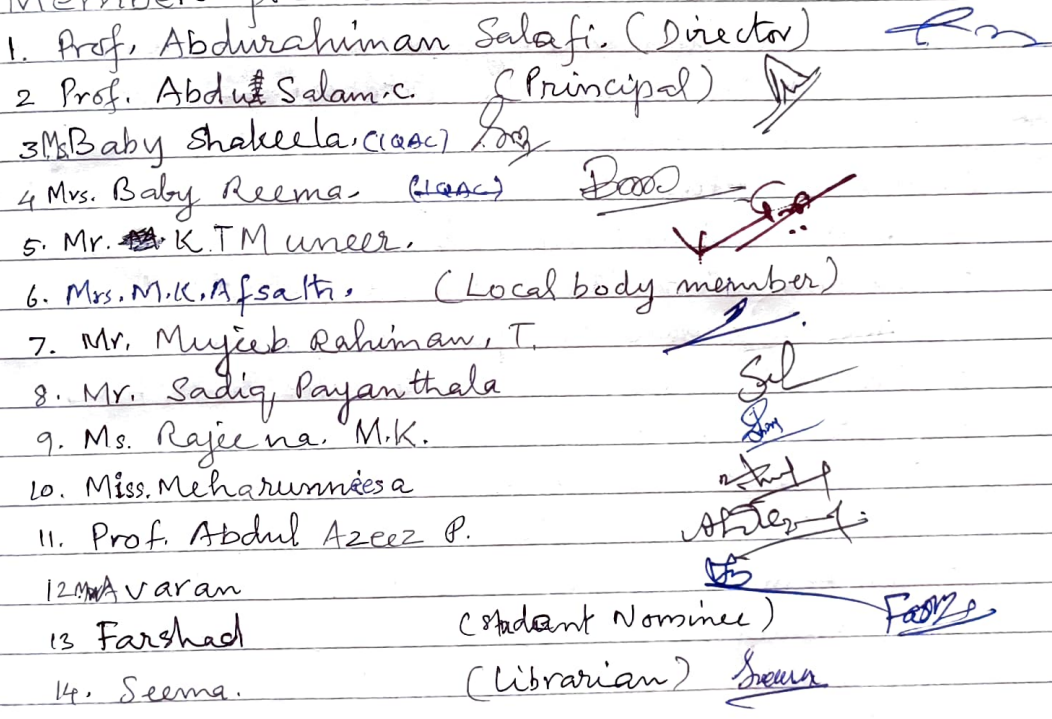 Members
1. Prof. Abdurahiman Salafi. (Director)
2 Prof. Abdul Salam.c. (Principal)
3 Ms Baby Shakeela, (IQAC)
4 Mrs. Baby Reema. (IQAC)
5. Mr. K.T Muneer.
6. Mrs. M.K. Afsath. (Local body member)
7. Mr. Mujeeb Rahiman, T.
8. Mr. Sadiq, Payanthala
9. Ms. Rajeena. M.K.
10. Miss. Meharunneesa
11. Prof. Abdul Azeez P.
12 Avaran
13 Farshad (Student Nominee)
14. Seema. (Librarian)